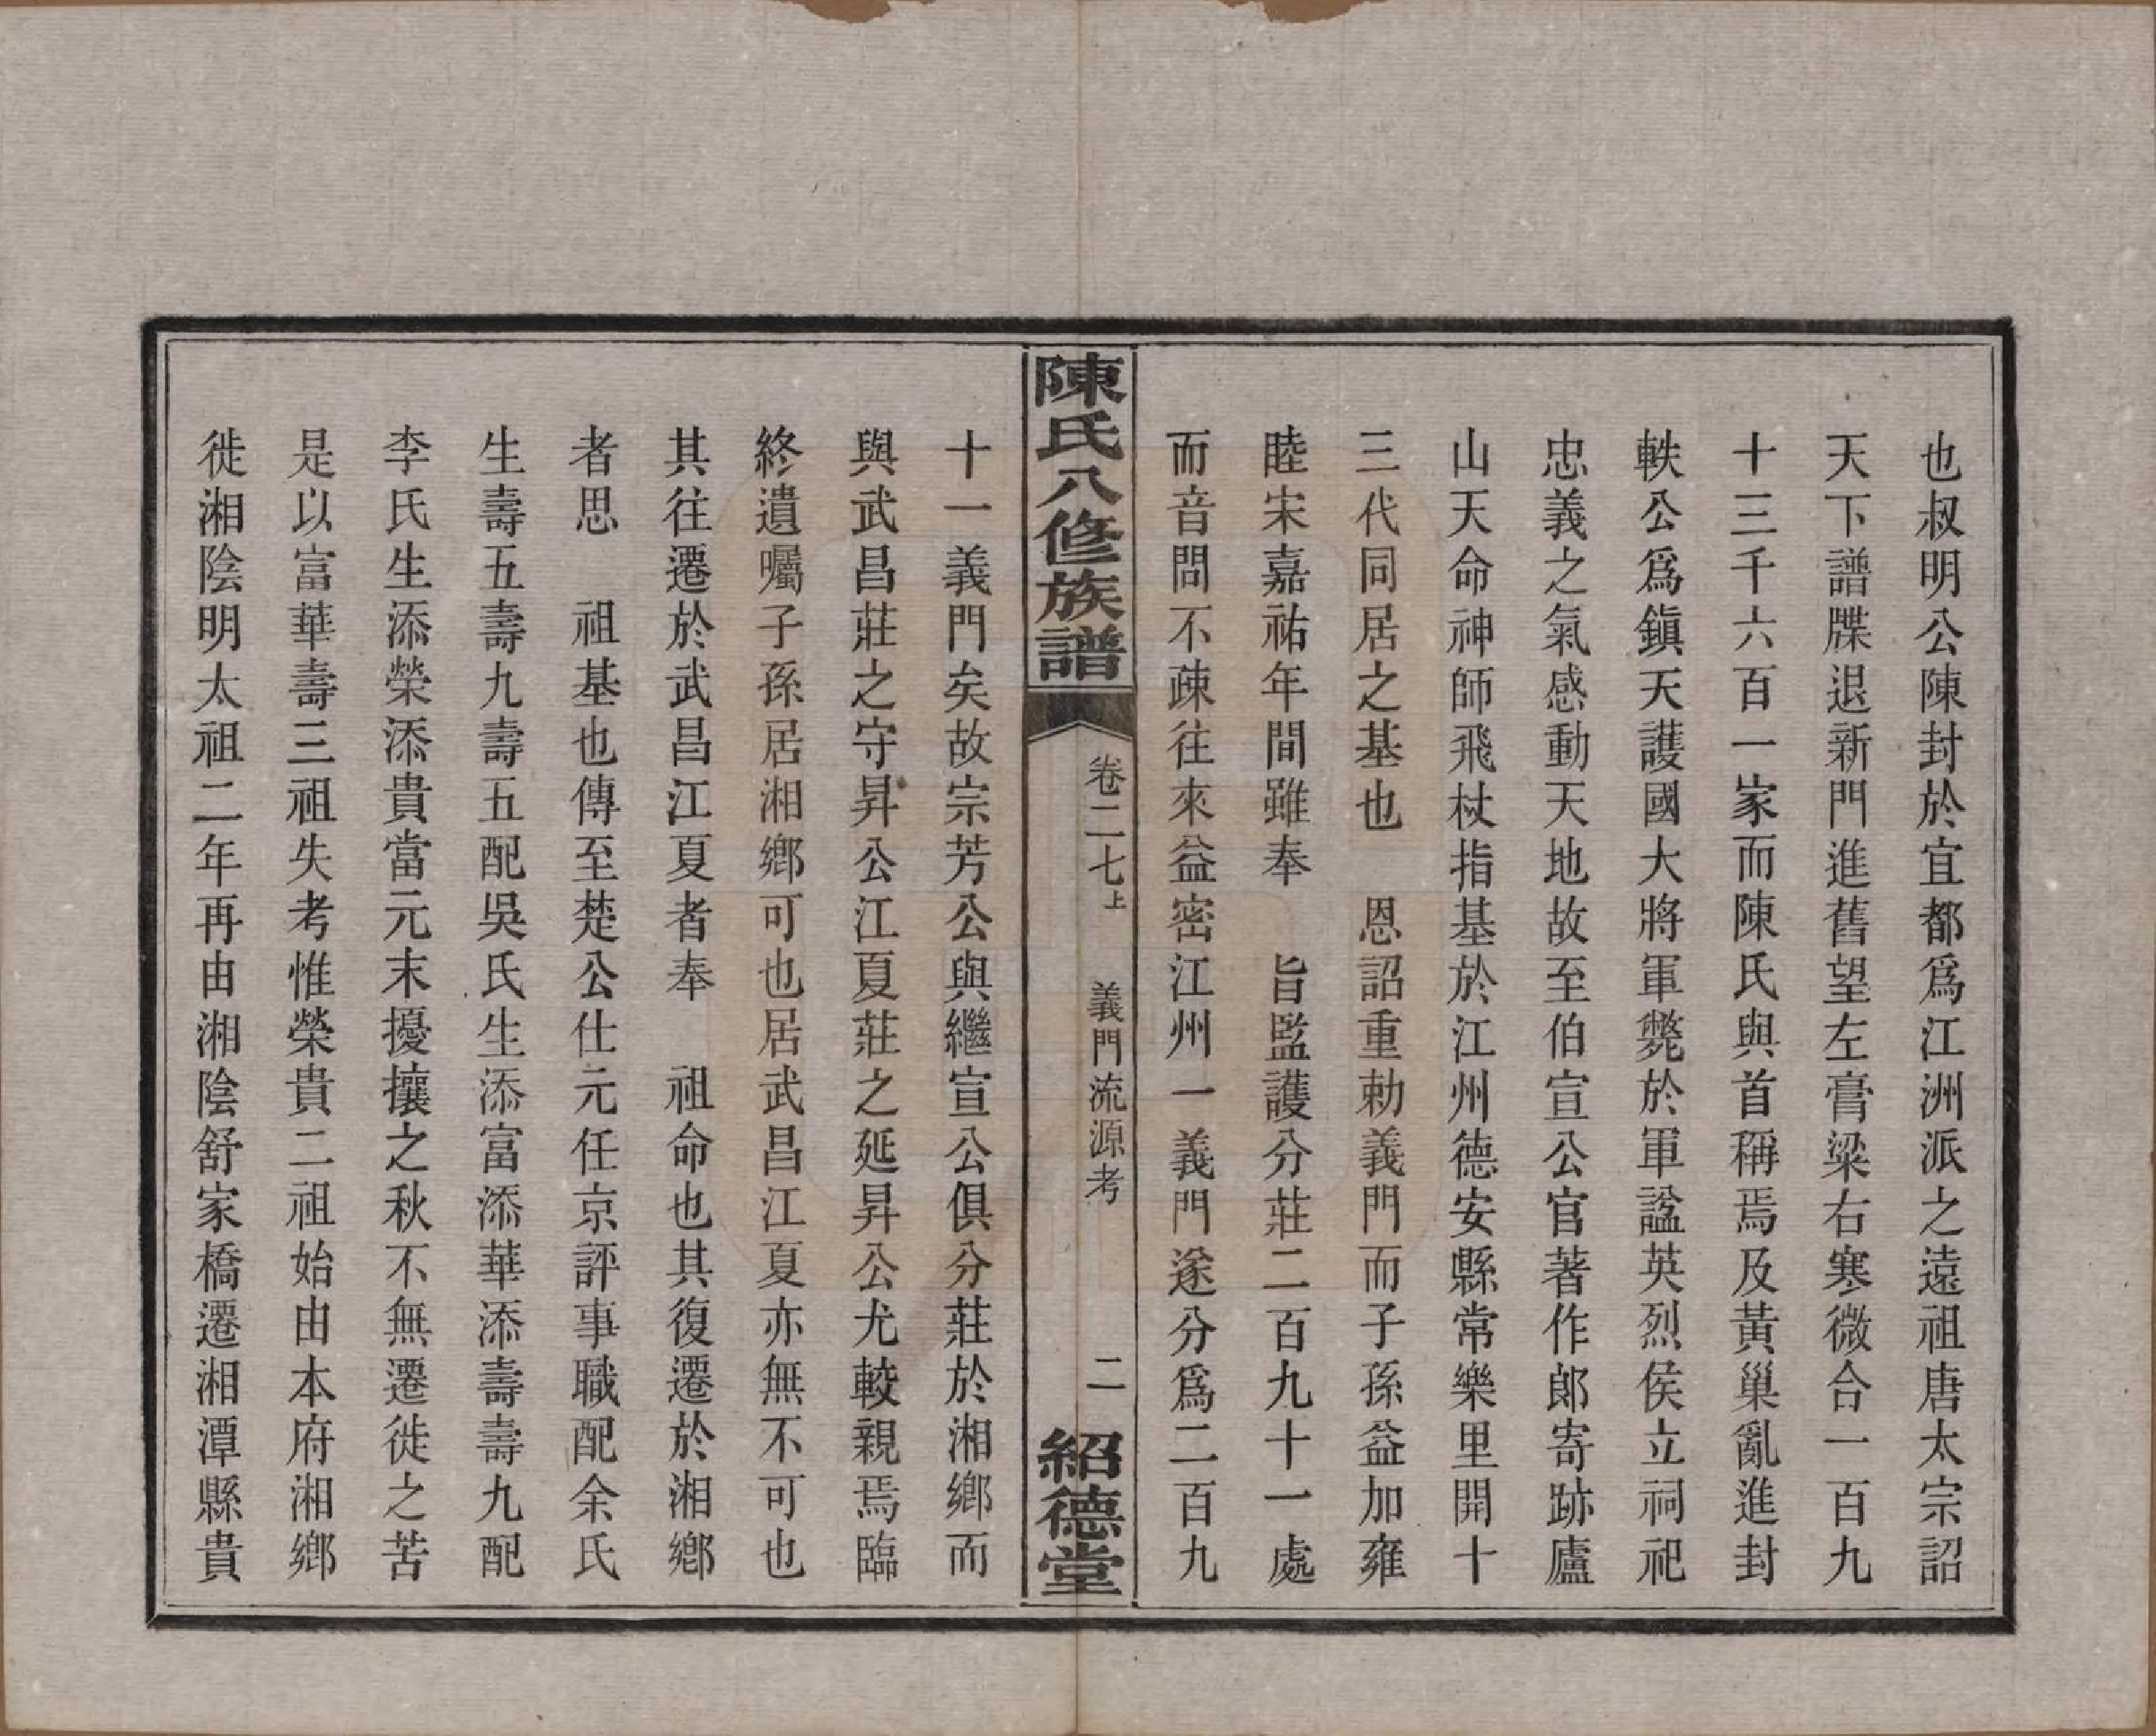 也叔明公陳封於宜都爲江洲派之遠祖唐太宗詔
天下譜牒退新門進舊望左膏粱右寒微合一百九
十三千六百一家而陳氏與首稱焉及黃巢亂進封
軼公爲鎭天護國大將軍斃於軍諡英烈侯立祠祀
忠義之氣感動天地故至伯宣公官著作郎寄跡廬
山天命神師飛杖指基於江州德安縣常樂里開十
三代同居之基也　恩詔重勅義門而子孫益加雍
睦宋嘉祐年間雖奉　旨監護分莊二百九十一處
而音問不疎往來益密江州一義門遂分爲二百九
陳氏八修族譜　卷二七上　義門流源考　二　紹德堂
十一義門矣故宗芳公與繼宣公俱分莊於湘鄉而
與武昌莊之守昇公江夏莊之延昇公尤較親焉臨
終遺囑子孫居湘鄉可也居武昌江夏亦無不可也
其往遷於武昌江夏者奉　祖命也其復遷於湘鄉
者思　祖基也傳至楚公仕元任京評事職配余氏
生壽五壽九壽五配吳氏生添富添華添壽壽九配
李氏生添榮添貴當元末擾攘之秋不無遷徙之苦
是以富華壽三祖失考惟榮貴二祖始由本府湘鄉
徙湘陰明太祖二年再由湘陰舒家橋遷湘潭縣貴